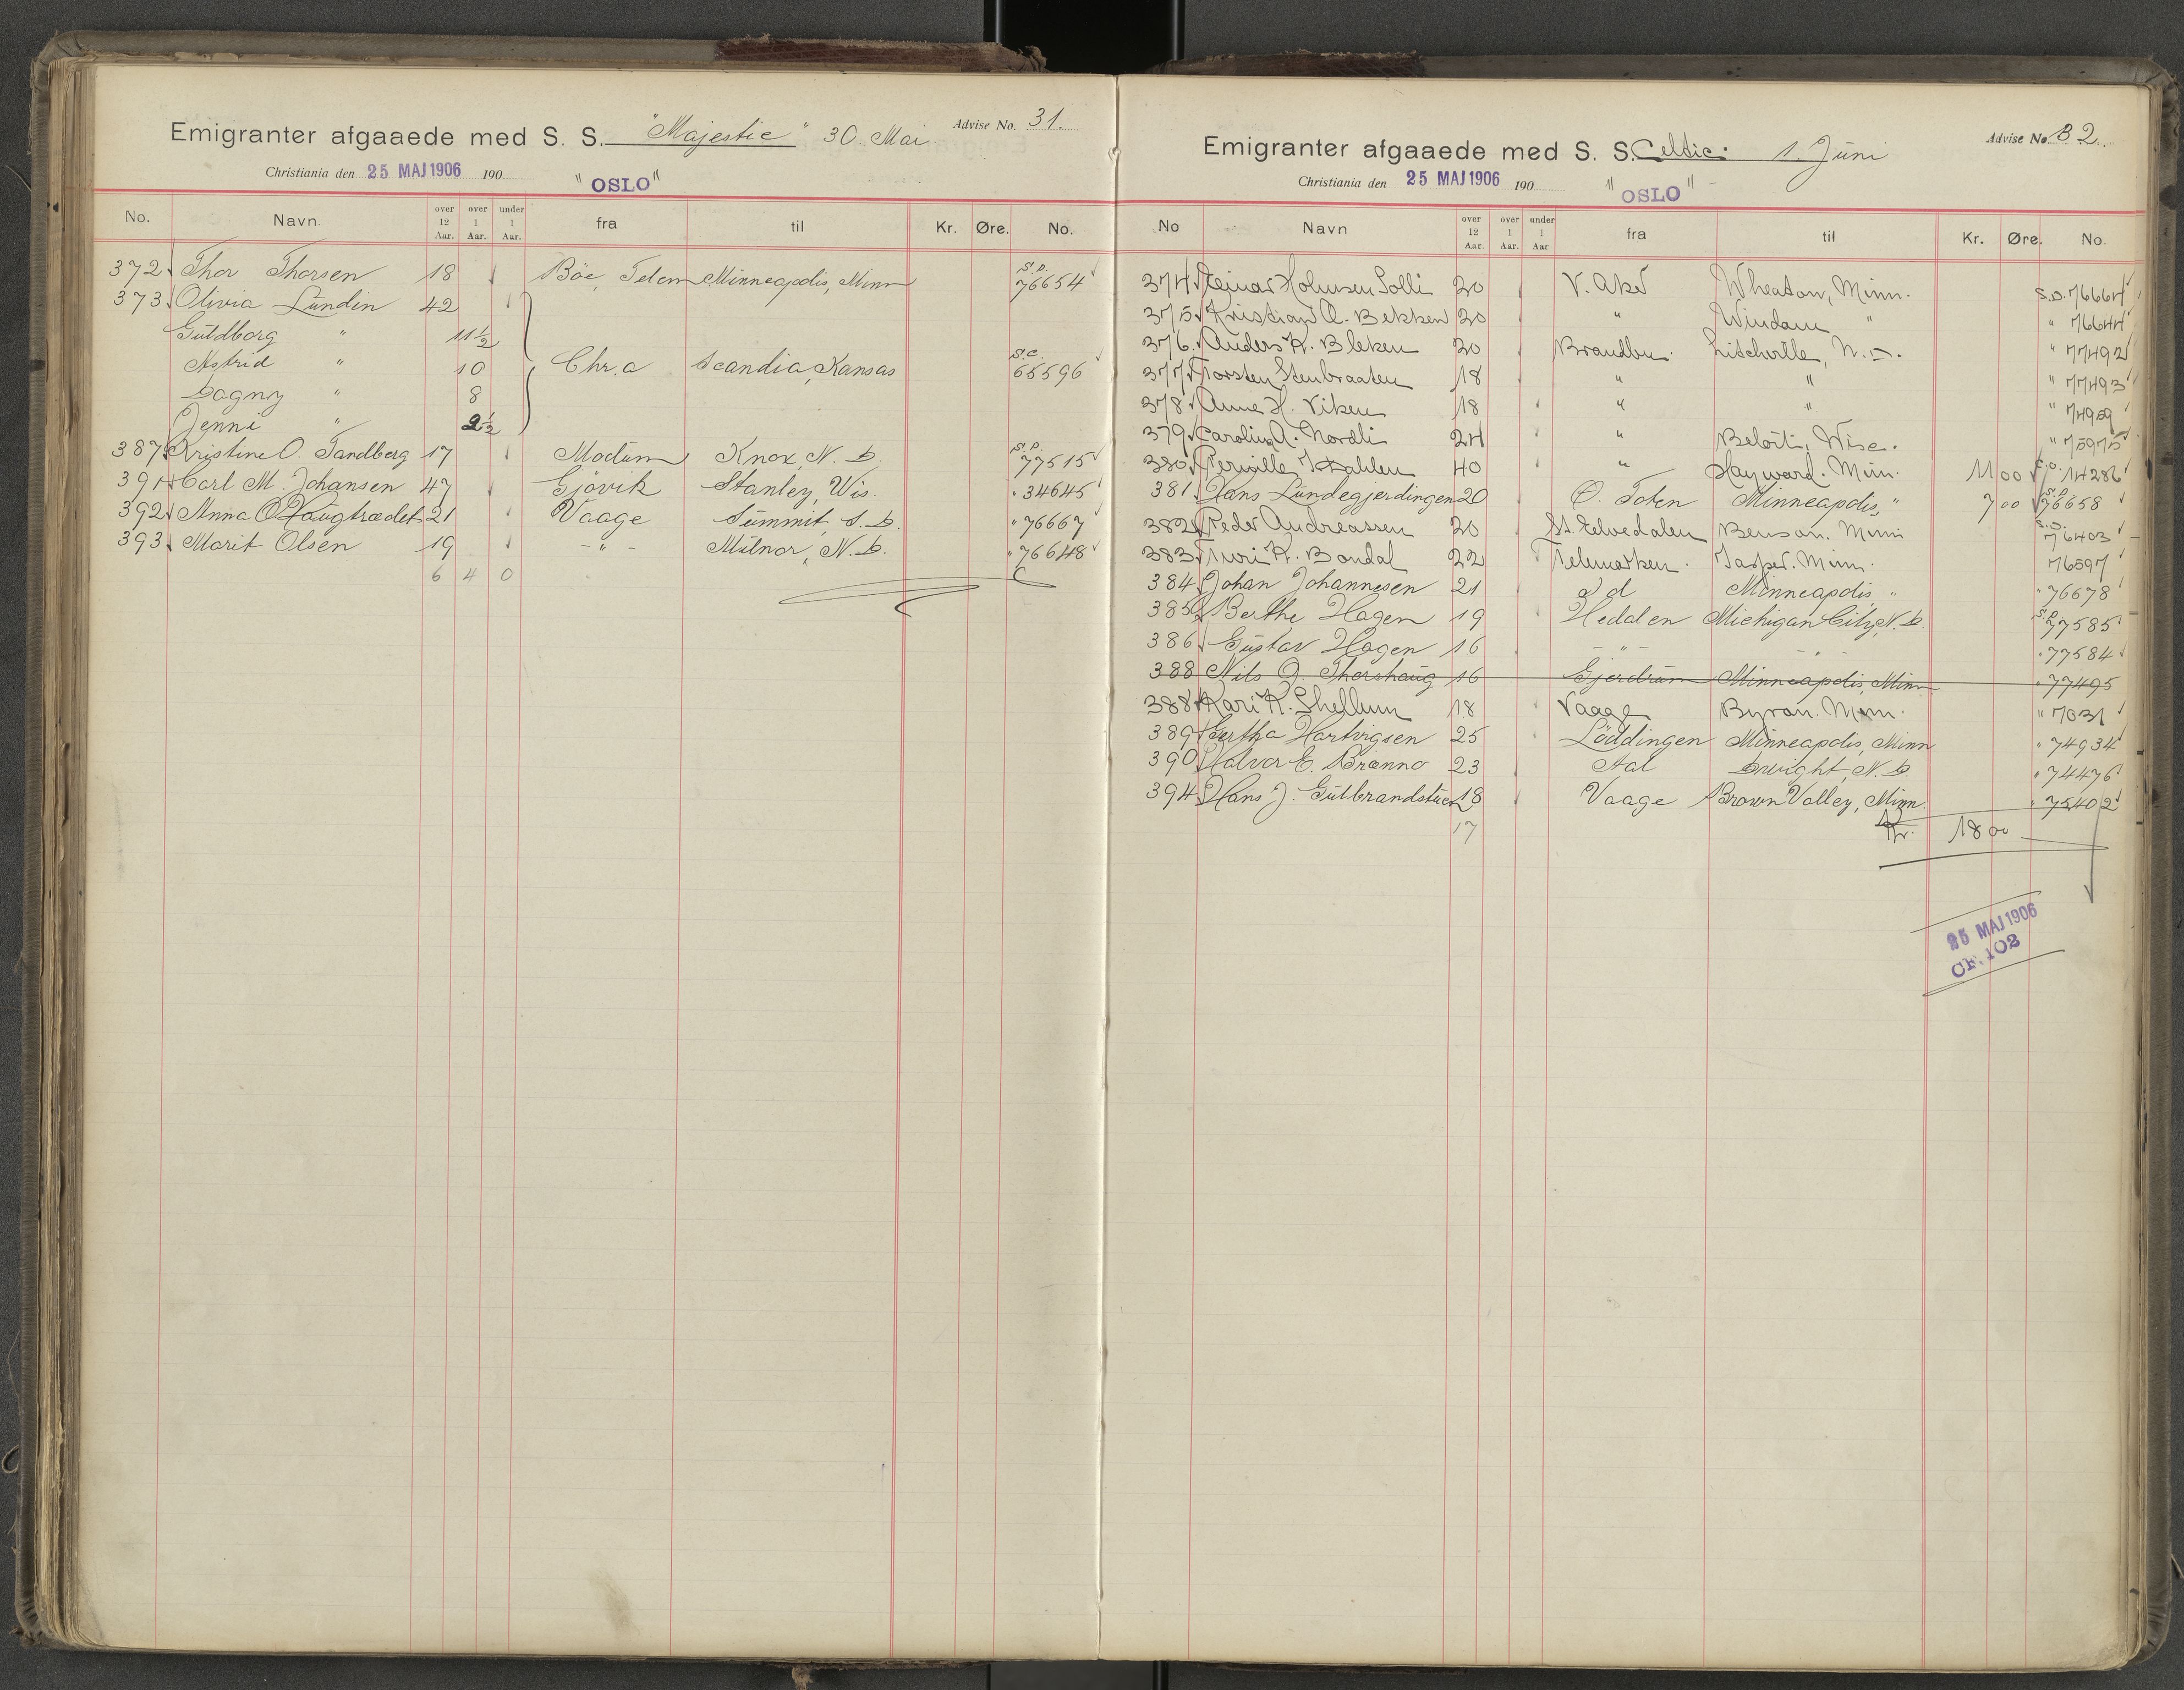 Emigranter afgaaede med S. S. "Majestic" 30. Mai. Advise No. 31.
Christiania den 25 MAJ 1906 190 "OSLO"
No. Navn. over 12 Aar. over 1 Aar. under 1 Aar. fra til Kr. Øre. No.
372 Thor Thorsen 18 Böe, Telem Minneapolis, Minn S.D. 76654
373 Olivia Lundin 42
Guldborg " 11 1/2
Astrid " 10 Chr.a Scandia, Kansas S.C. 65596
Dagny " 8
Jenni " 2 1/2
387 Kristine O. Sandberg 17 Modum Knox, N. D. S.D. 77515
391 Carl M. Johansen 47 Gjövik Stanley, Wis. " 34645
392 Anna O Haugtrædet 21 Vaage Summit, S. D. " 76667
393 Marit Olsen 19 - " - Milnor, N. D. " 76648
6 4 0
Emigranter afgaaede med S. S. Celtic. 1. Juni Advise No. 32.
Christiania den 25 MAJ 1906 190 "OSLO"
No Navn over 12 Aar. over 1 Aar. under 1 Aar fra til Kr. Øre. No.
374 Einar Holmsen Solli 20 V. Aker Wheaton, Minn. S.D. 76664
375 Kristian A. Bekken 20 " Windom " " 76644
376. Anders K. Bleken 20 Brandbu. Litchville, N. D. " 77492
377 Torsten Stenbraaten 18 " " " 77493
378 Anne H. Viken 18 " " " 74959
379 Carolina A. Nordli 24 " Beloit, Wisc. " 75975
380 Pernille Dahlen 40 " Hayward. Minn. 11 00 14286
381 Hans Lundegjerdingen 20 O. Toten Minneapolis, " 7 00 S.D. 76658
382 Peder Andreassen 20 St. Elvedalen Benson. Minn S.D. 76403
383 Turi K. Bondal 22 Telemarken. Jasper. Minn. 76597
384 Johan Johannesen 21 d d Minneapolis " " 76678
385 Berthe Hagen 19 Hedalen Michigan City, N. D. S.D. 77585
386 Gustav Hagen 16 - " - " " 77584
388 Nils O. Thorshaug 16 Gjerdrum Minneapolis, Minn " 77495
388 Kari K. Shellum 18 Vaage Byron. Minn. " 7031
389 Gertha Hartvigsen 25 Löddingen Minneapolis, Minn " 74934
390 Halvor E. Brænno 23 Aal Dwight, N. D. " 74476
394 Hans J. Gulbrandstuen 18 Vaage Brown Valley, Minn. " 75402
17 Kr. 18 00
25 MAJ 1906
CF. 102